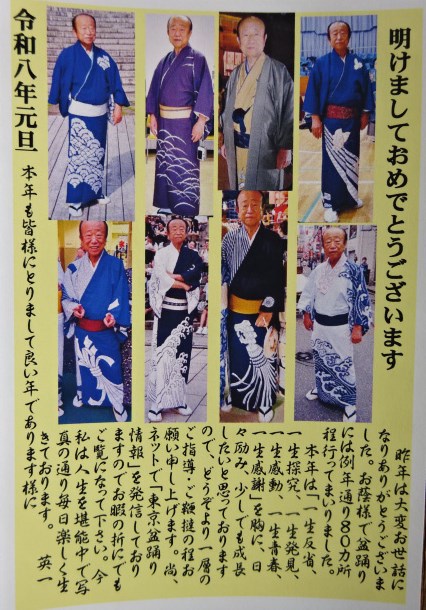 明けましておめでとうございます
昨年は大変お世話に
なりありがとうございま
した。お陰様で盆踊り
には例年通り80カ所
程行ってまいりました。
本年は「一生反省、
一生探究、一生発見、
一生感動、一生青春
一生感謝」を胸に、日
々励み、少しでも成長
したいと思っております
ので、どうぞより一層の
ご指導・ご鞭撻の程お
願い申し上げます。尚、
ネットで「東京盆踊り
情報」を発信しており
ますのでお暇の折にでも
ご覧になって下さい。今
私は人生を堪能中で写
真の通り毎日楽しく生
きております。 英一
本年も皆様にとりまして良い年であります様に
令和八年元旦